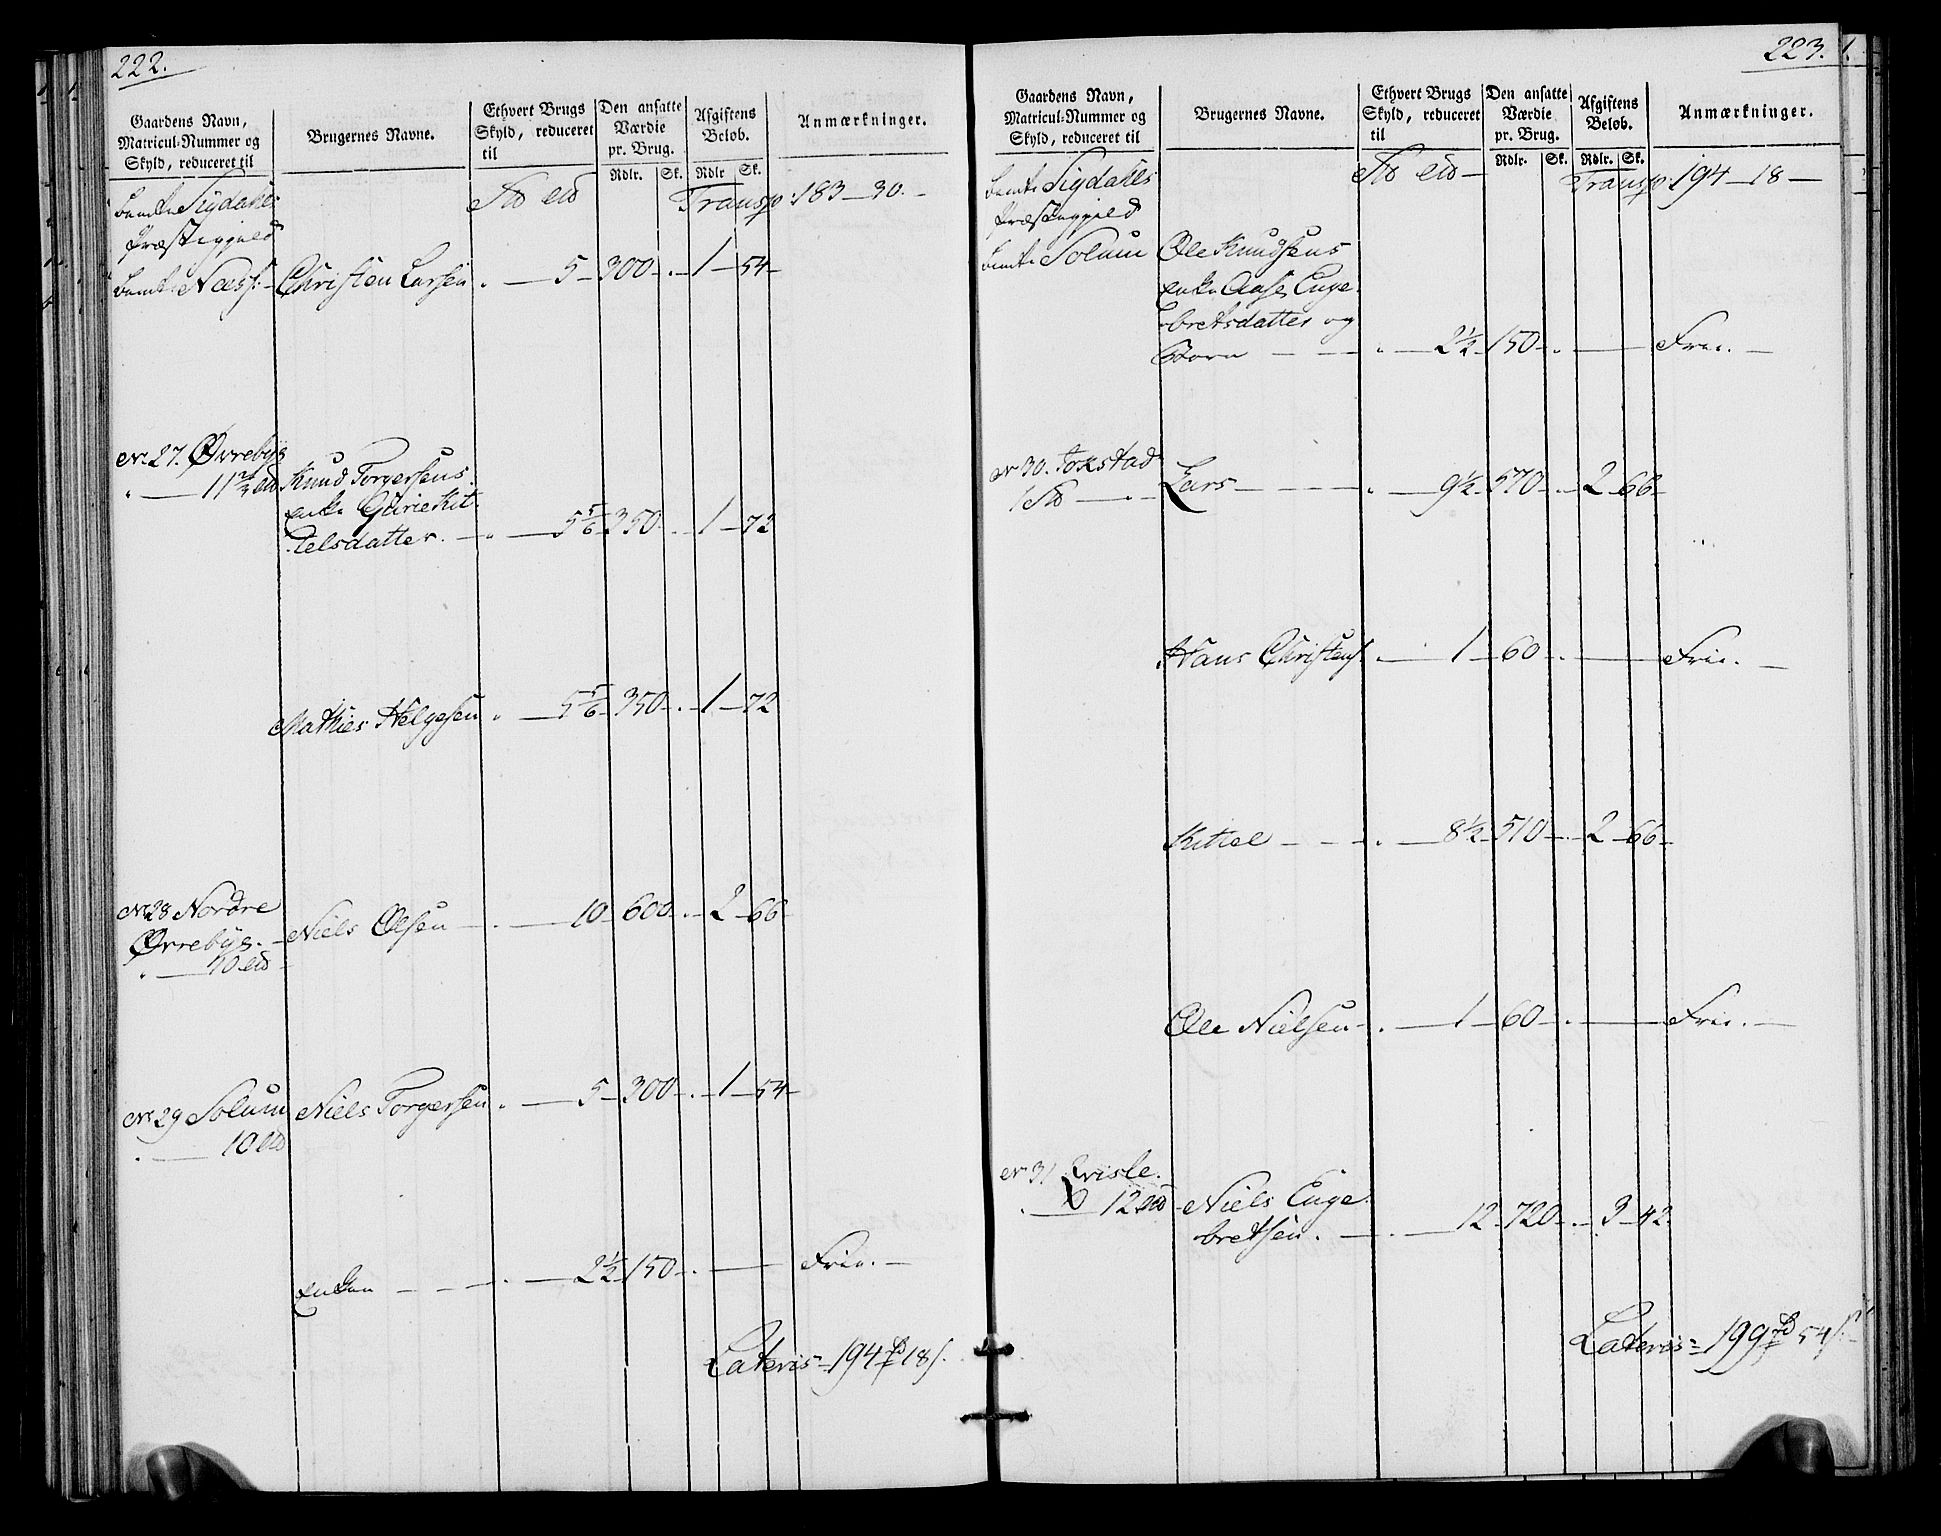 222.
Gaardens Navn, Matricul-Nummer og Skyld, reduceret til
Brugernes Navne.
Ethvert Brugs Skyld, reduceret til
Den ansatte Værdie pr. Brug.
Rdlr. Sk.
Afgiftens Beløb.
Rdlr Sk.
Anmærkninger.
Sigdahls Transp. 183 - 30. -
Præstegjeld
Næss. - Christen Larsen . - 5 - 300 - . - 1 - 54 -
No. 27. Øvrebye
Knud Torgersens
" - 11 2/3
Enke Gurie Kit-
telsdatter. - " - 5 5/6 - 350 - . - 1 - 72
Mathies Helgesen " - 5 5/6 - 350 - . - 1 - 72
No. 28 Nordre
Øvrebye. - Niels Olsen - . - 10 - 600 - . - 2 - 66 -
" - 10
No. 29 Solum Niels Torgersen . - 5 - 300 - . - 1 - 54 -
. - 10
Enken - - - . - 2 1/2 - 150 - . - Frie. -
Lateris = 194 rd 18 s.
223.
Gaardens Navn, Matricul-Nummer og Skyld, reduceret til
Brugernes Navne.
Ethvert Brugs Skyld, reduceret til
Den ansatte Værdie pr. Brug.
Rdlr. Sk.
Afgiftens Beløb.
Rdlr. Sk.
Anmærkninger.
Sigdahls Transp. 194 - 18 -
Præstegjeld
Solum Ole Knudsens
Enke Aase Enge-
bretsdatter og
Børn - - - . - 2 1/2 - 150 - . - Frie. -
No 30. Tokstad
Lars - - - . - 9 1/2 - 570 - . - 2 - 66 -
1
Hans Christens. . - 1 - 60 - . - Frie. -
Kittel - - - . - 8 1/2 - 510 - . - 2 - 66 -
Ole Nielsen - . - 1 - 60 - . - Frie. -
No 31
. - 12 - Niels Enge-
bretsen. - . - 12 - 720 - . - 3 - 42.
Lateris = 199 rd 54 s.